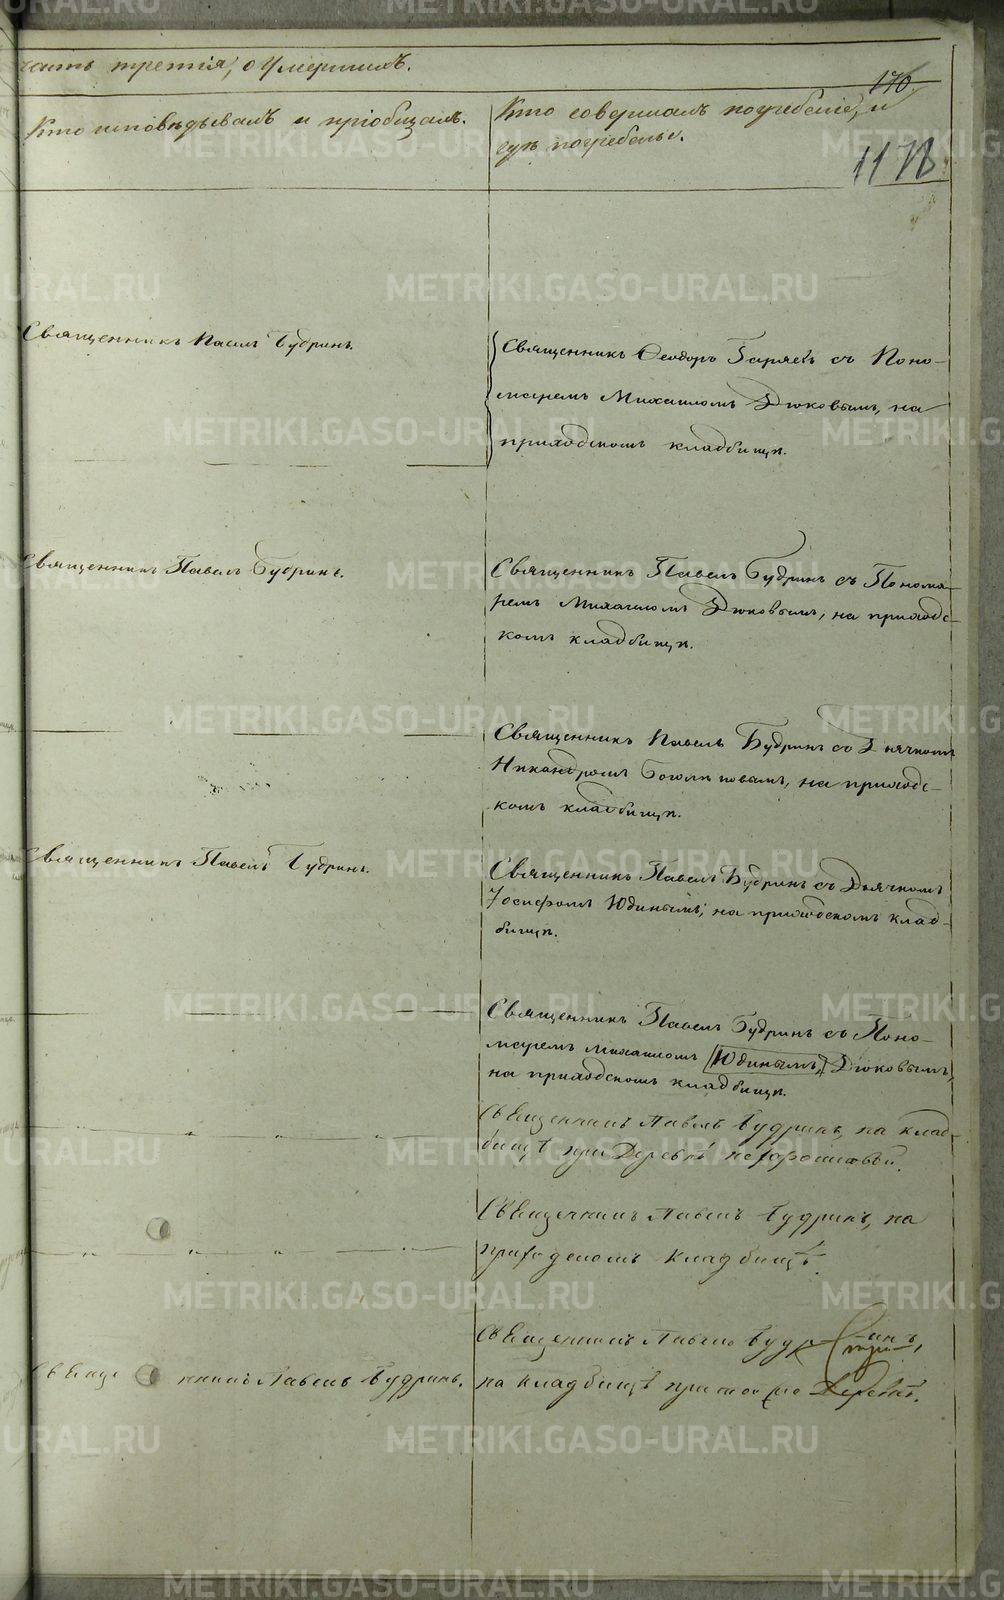 часть третія, о умершихъ.
170
Кто исповѣдывалъ и пріобщалъ.
Кто совершалъ погребеніе, и
гдѣ погребены.
Священникъ Павелъ Будринъ.
Священникъ Феодоръ съ Поно-
маремъ Михаиломъ Дюковымъ, на
приходскомъ кладбищѣ.
Священникъ Павелъ Будринъ.
Священникъ Павелъ Будринъ съ Понома-
ремъ Михаиломъ Дюковымъ, на приходс-
комъ кладбищѣ.
Священникъ Павелъ Будринъ съ Дьячкомъ
Никандромъ Боголѣповымъ, на приходс-
комъ кладбищѣ.
Священникъ Павелъ Будринъ.
Священникъ Павелъ Будринъ съ Дьячкомъ
Іосифомъ Юдинымъ, на приходскомъ клад-
бищѣ.
Священникъ Павелъ Будринъ съ Поно-
маремъ Михаиломъ Юдинымъ, Дюковымъ,
на приходскомъ кладбищѣ.
Священникъ Павелъ Будринъ, на клад-
бищѣ при Деревнѣ
Священникъ Павелъ Будринъ, на
приходскомъ кладбищѣ.
Священникъ Павелъ Будринъ,
на кладбищѣ при Деревнѣ.
Священникъ Павелъ Будринъ.
METRIKI.GASO-URAL.RU